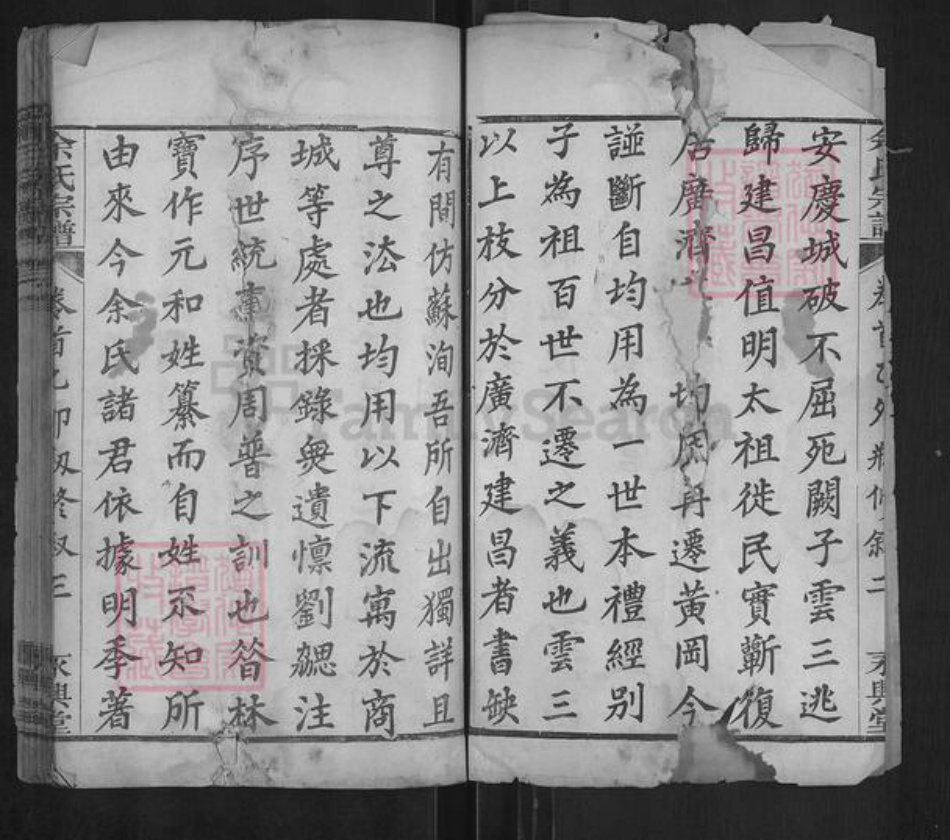 安慶城破不屈死闕子雲三逃
歸建昌值明太祖徙民實蘄復
居廣濟 均用再遷黃岡今
譜斷自均用為一世本禮經别
子為祖百世不遷之義也雲三
以上枝分於廣濟建昌者書缺
有間仿蘇洵吾所自出獨詳且
尊之法也均用以下流寓於商
城等處者採錄無遺懍劉勰注
序世統事資周普之訓也昝林
寶作元和姓纂而自姓不知所
由來今余氏諸君依據明季著
余氏宗譜 卷首 三 永興堂
余氏宗譜 卷首 二 永興堂
FamilySearch